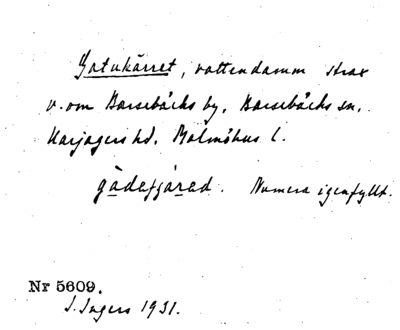 Gatukärret, vattendamm strax
v. om Barsebäcks by, Barsebäcks sn,
Harjagers hd, Malmöhus l.
gådafjärad. Numera igenfyllt.
Nr 5609.
I. Ingers 1931.